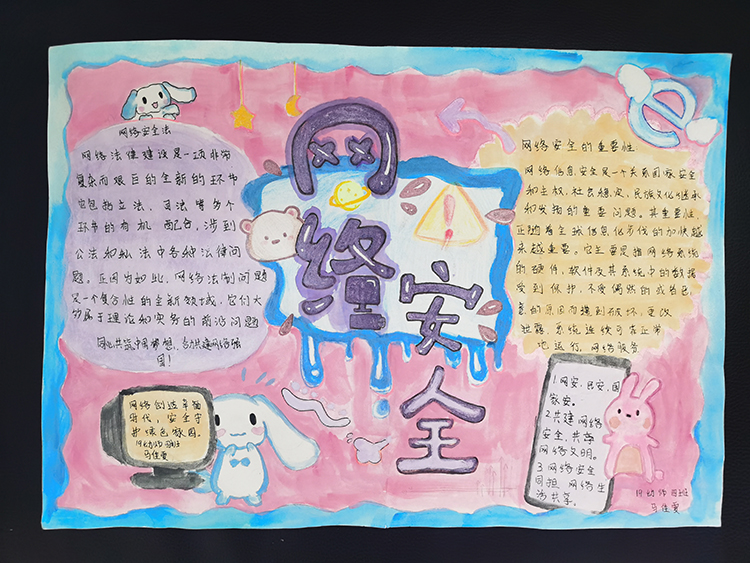 网络安全
网络安全法
网络法律建设是一项非常
复杂而艰巨的全新的环节
它包括立法、司法等多个
环节的有机配合,涉到
公法和私法中各种法律问
题。正因为如此,网络法制问题
是一个复合性的全新领域,它们大
多属于理论和实务的前沿问题
同心共筑中国梦想,合力共建网络强
国!
网络安全的重要性
网络信息安全是一个关系国家安全
和主权,社会稳定,民族文化继承
和发扬的重要问题。其重要性,
正随着全球信息化步伐的加快越
来越重要。它主要是指网络系统
的硬件,软件及其系统中的数据
受到保护,不受偶然的或者恶
意的原因而遭到破坏、更改
泄露,系统连续可靠正常
地运行,网络服务
网络创造幸福
时代,安全守
护绿色家园。
19幼师四班
马佳雯
1.网安,民安,国
家安。
2.共建网络
安全,共享
网络文明。
3.网络安全
同担,网络生
活共享。
19幼师四班
马佳雯